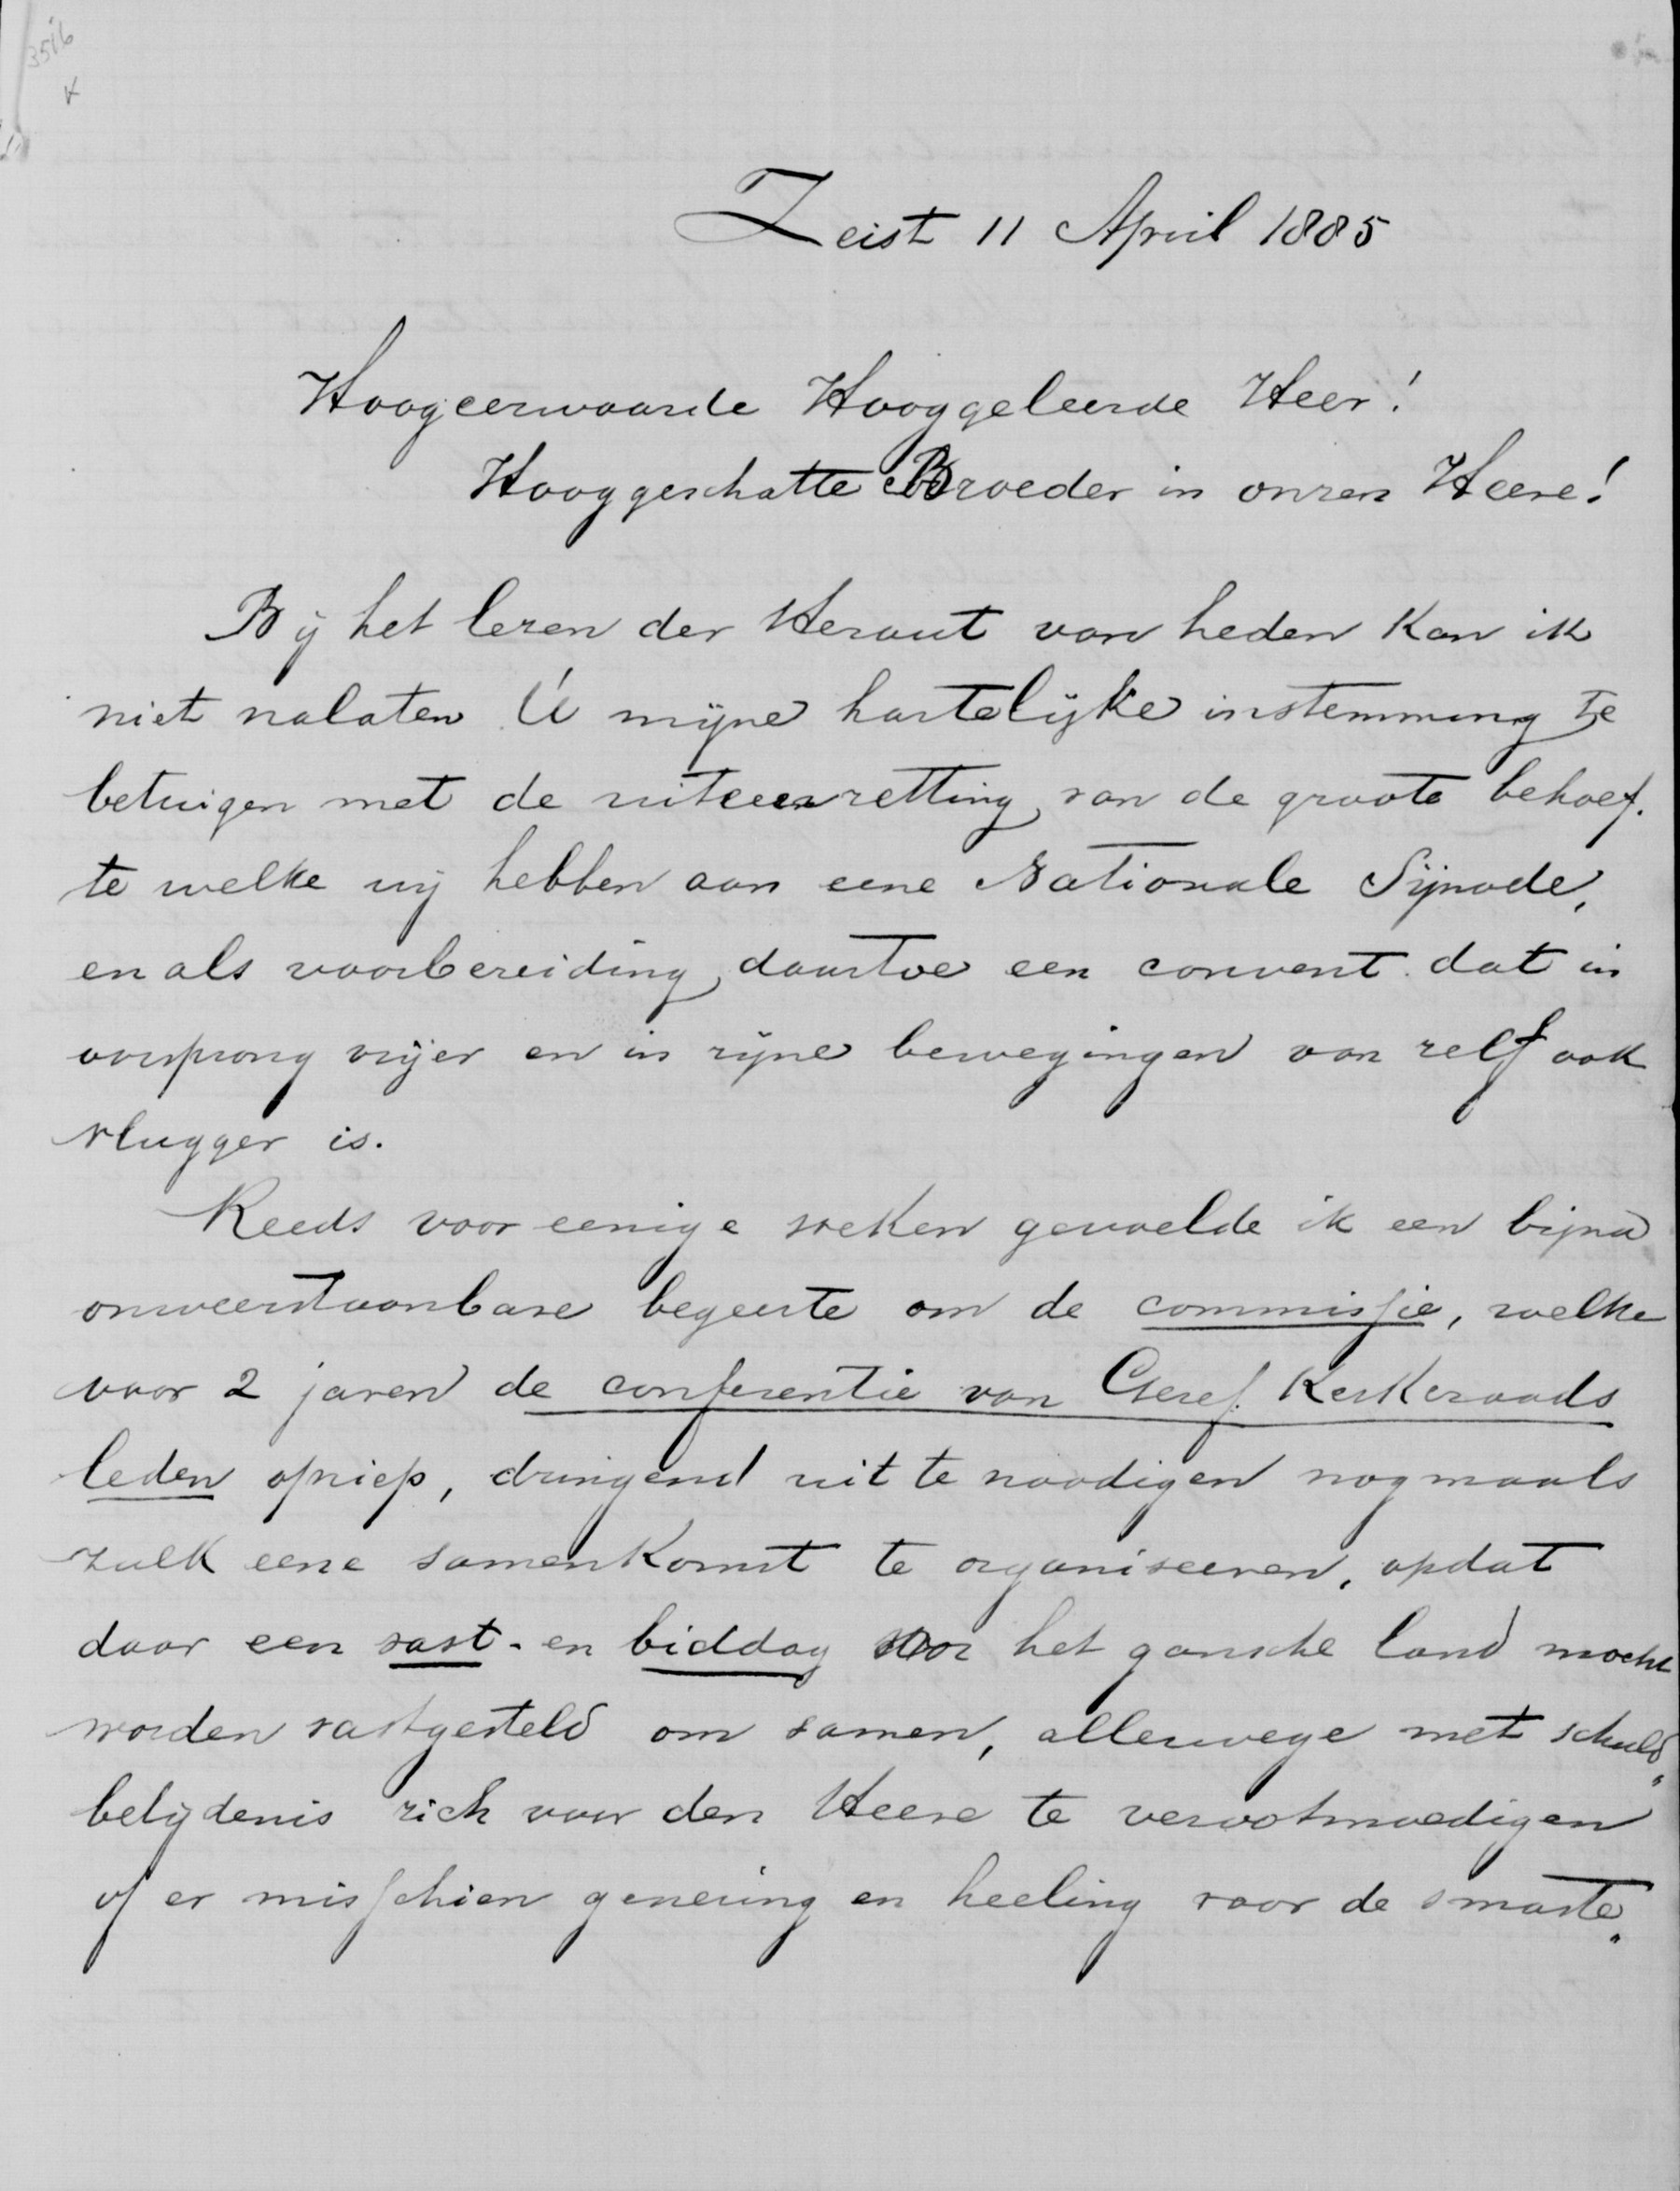 3516
x
Zeist 11 April 1885
Hoogeerwaarde Hooggeleerde Heer!
Hooggeschatte Broeder in onzen Heere!
Bij het lezen der Heraut van heden kan ik
niet nalaten U mijne hartelijke instemming te
betuigen met de uiteenzetting van de groote behoef-
te welke wij hebben aan eene Nationale Sijnode,
en als voorbereiding daartoe een convent dat in
oorsprong vrijer en in zijne bewegingen van zelf ook
vlugger is.
Reeds voor eenige weken gevoelde ik een bijna
onweerstaanbare begeerte om de commissie, welke
voor 2 jaren de conferentie van Geref. Kerkeraads
leden opriep, dringend uit te noodigen nogmaals
zulk eene samenkomst te organiseeren, opdat
daar een vast- en biddag voor het gansche land mocht
worden vastgesteld om samen, allerwege met schuld„
belijdenis zich voor den Heere te verootmoedigen
of er misschien genezing en heeling voor de smarte„